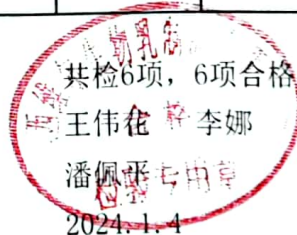 共检6项，6项合格
王伟花 李娜
潘佩平
2024.1.4